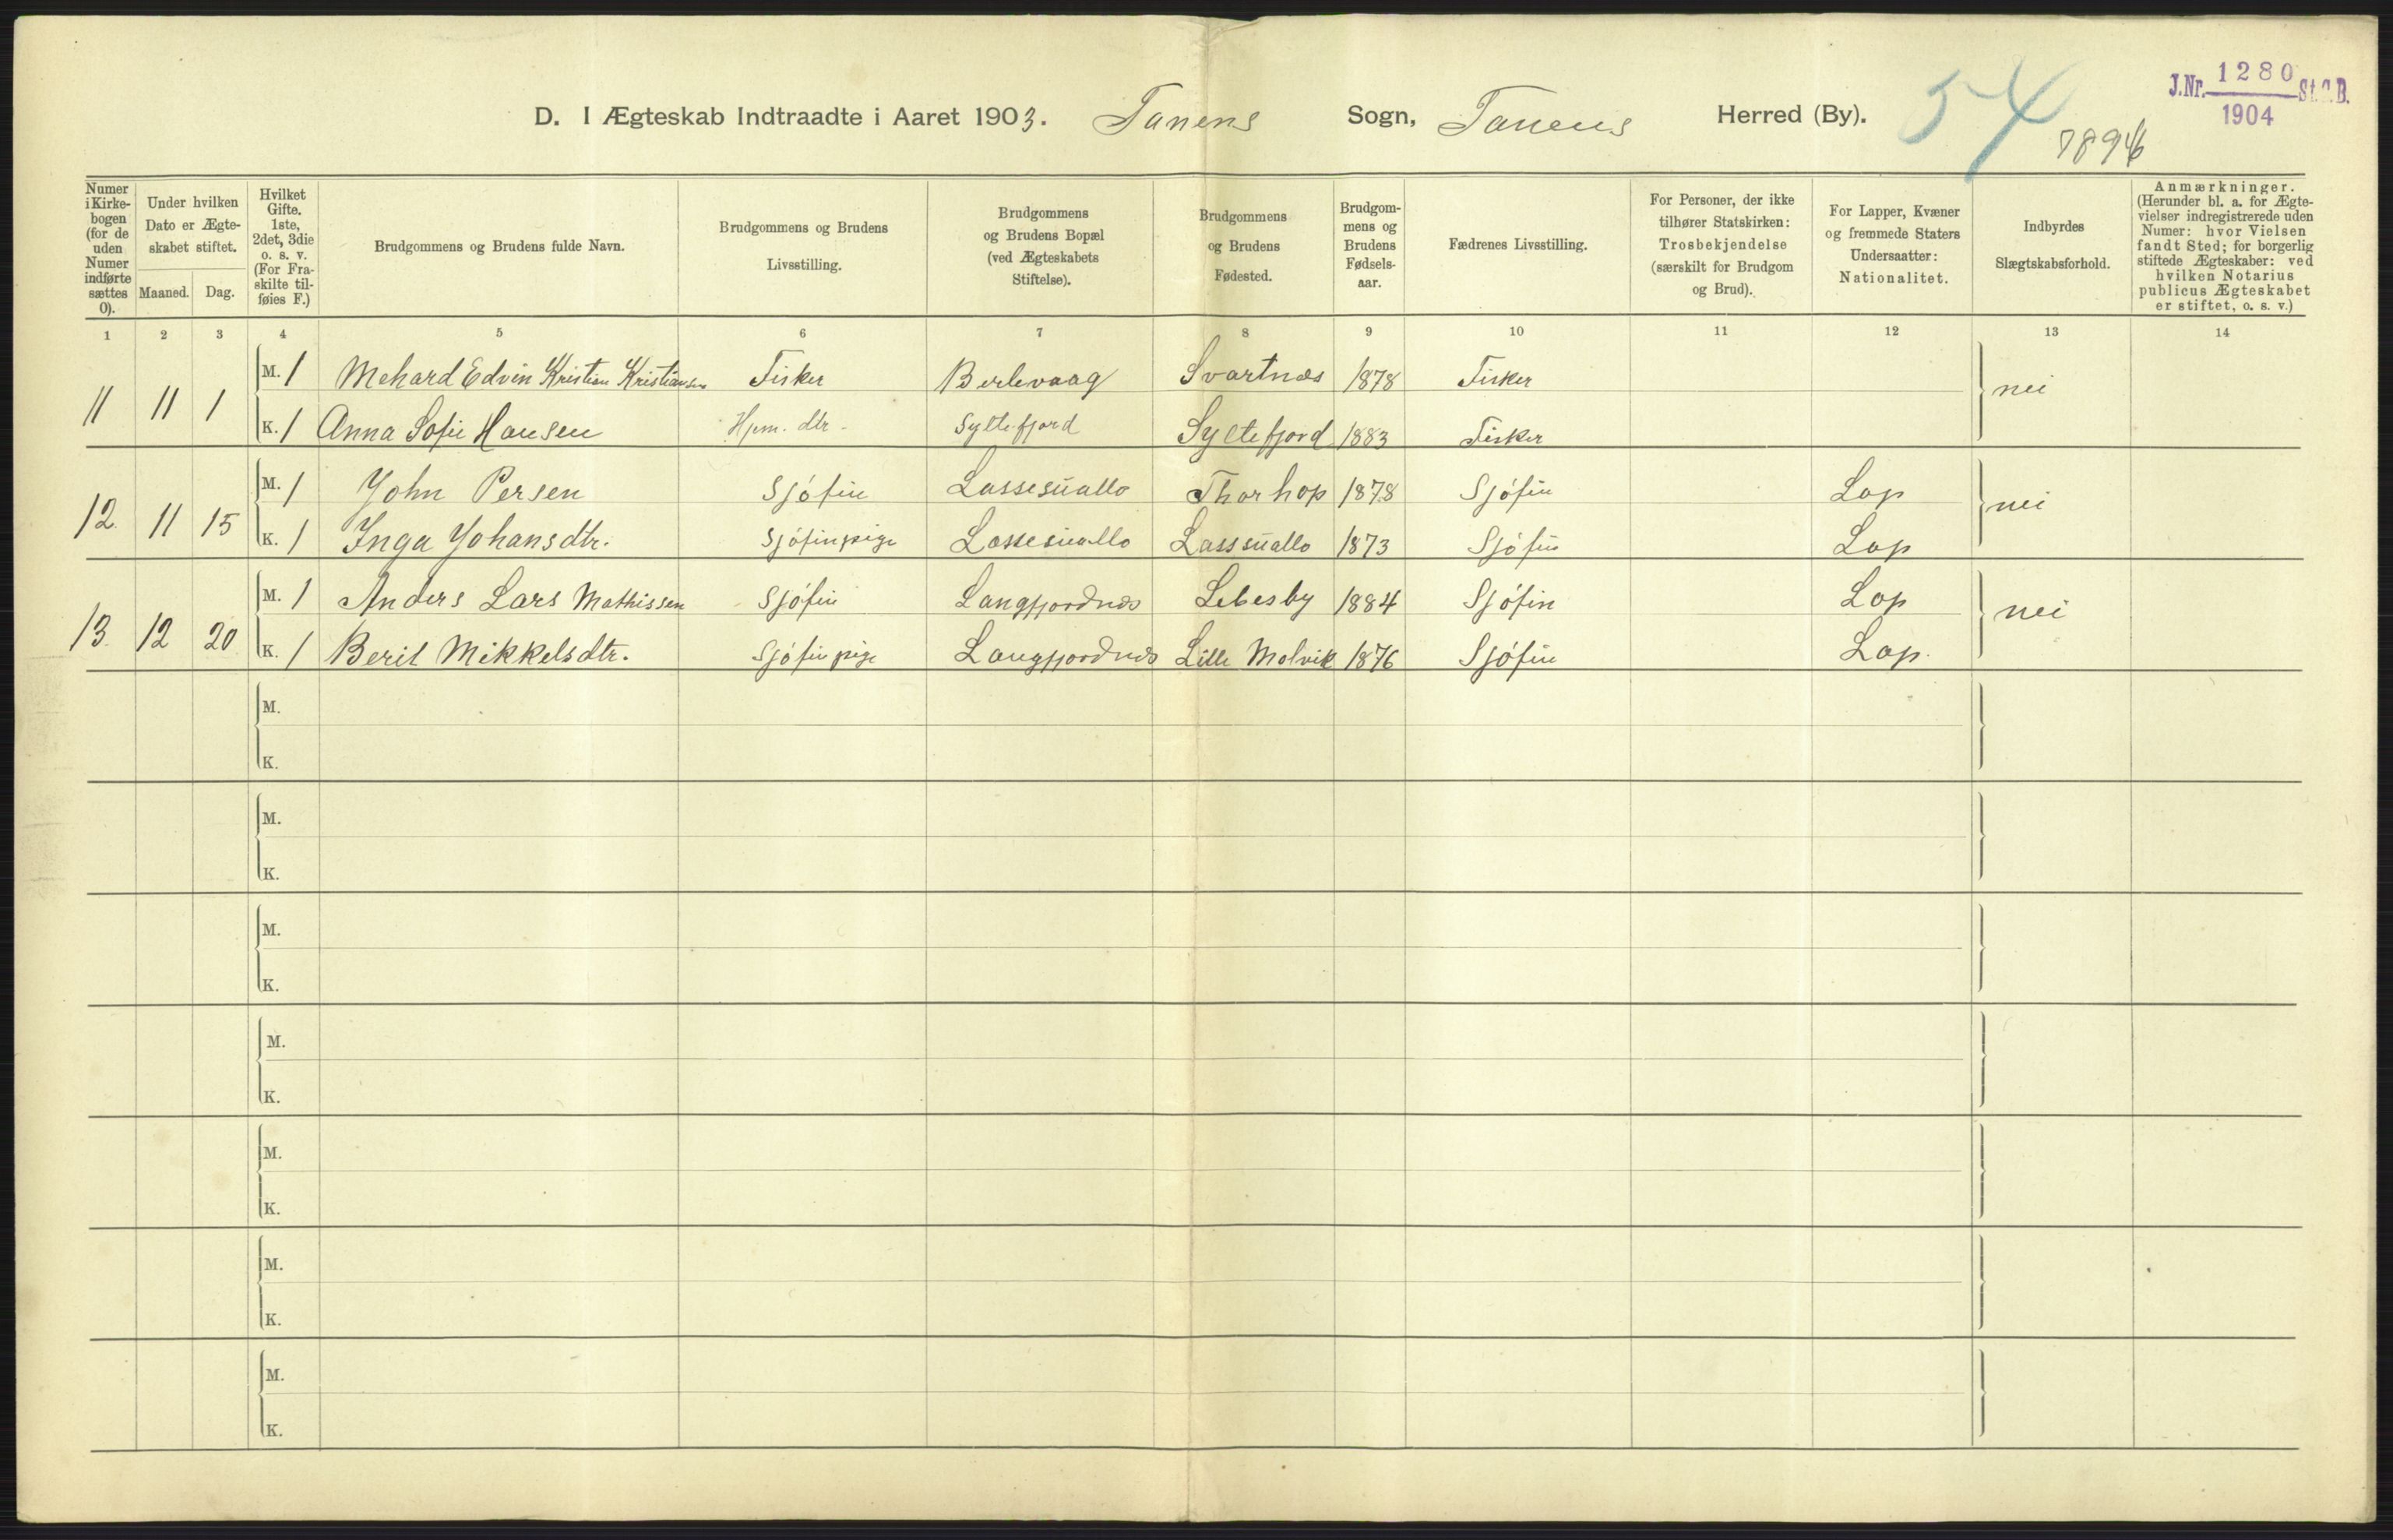 D. I Ægteskab Indtraadte i Aaret 1903. Tanens Sogn, Tanens Herred (By).
54
7894
J.Nr. 1280 St.C.B.
1904
Numer i Kirkebogen (for de uden Numer indførte sættes 0).
Under hvilken Dato er Ægteskabet stiftet.
Maaned. Dag.
Hvilket Gifte. 1ste, 2det, 3die o. s. v. (For Fraskilte tilføies F.)
Brudgommens og Brudens fulde Navn.
Brudgommens og Brudens Livsstilling.
Brudgommens og Brudens Bopæl (ved Ægteskabets Stiftelse).
Brudgommens og Brudens Fødested.
Brudgommens og Brudens Fødselsaar.
Fædrenes Livsstilling.
For Personer, der ikke tilhører Statskirken: Trosbekjendelse (særskilt for Brudgom og Brud).
For Lapper, Kvæner og fremmede Staters Undersaatter: Nationalitet.
Indbyrdes Slægtskabsforhold.
Anmærkninger. (Herunder bl. a. for Ægtevielser indregistrerede uden Numer: hvor Vielsen fandt Sted; for borgerlig stiftede Ægteskaber: ved hvilken Notarius publicus Ægteskabet er stiftet, o. s. v.)
1 2 3 4 5 6 7 8 9 10 11 12 13 14
11 11 1 M. 1 Mehard Edvin Kristian Kristiansen Fisker Berlevaag Svartnæs 1878 Fisker nei
K. 1 Anna Sofie Hansen Hjem. dtr. Syltefjord Syltefjord 1883 Fisker
12 11 15 M. 1 John Persen Sjófin Lassesuallo Thorhop 1878 Sjófin Lap nei
K. 1 Inga Johansdtr. Sjófinpige Lassesuallo Lasssuallo 1873 Sjófin Lap
13 12 20 M. 1 Anders Lars Mathissen Sjófin Langfjordnæs Lebesby 1884 Sjófin Lap nei
K. 1 Berit Mikkelsdtr. Sjófinpige Langfjordnæs Lille Molvik 1876 Sjófin Lap.
M.
K.
M.
K.
M.
K.
M.
K.
M.
K.
M.
K.
M.
K.